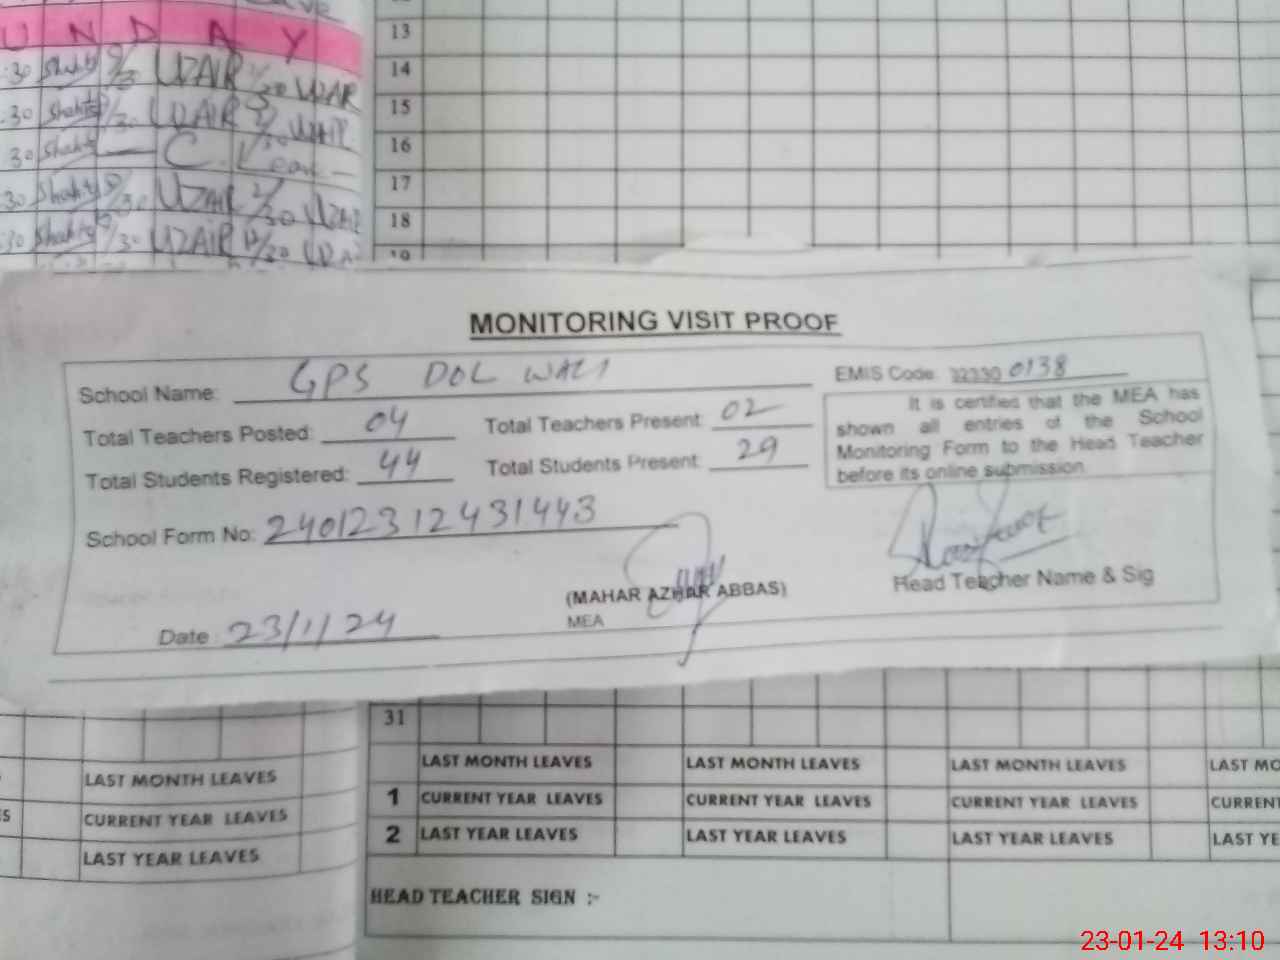 U N D A Y
:30 Shahty 9/30 UZAIR 1/30 UZAIR
.30 Shahty /30 UZAIR 2/30 UZAIR
30 Shahty — C. Leave —
30 Shahty 8/30 UZAIR 2/30 UZAIR
:30 Shahty 8/30 UZAIR 12/30 UZAI
13
14
15
16
17
18
19
MONITORING VISIT PROOF
School Name: GPS DOL WALI
EMIS Code: 32330 0138
Total Teachers Posted: 04 Total Teachers Present: 02
Total Students Registered: 44 Total Students Present: 29
It is certified that the MEA has
shown all entries of the School
Monitoring Form to the Head Teacher
before its online submission.
School Form No: 24012312431443
(MAHAR AZHAR ABBAS)
MEA
Head Teacher Name & Sig
Date: 23/1/24
31
LAST MONTH LEAVES
CURRENT YEAR LEAVES
LAST YEAR LEAVES
LAST MONTH LEAVES LAST MONTH LEAVES LAST MONTH LEAVES LAST MO
1 CURRENT YEAR LEAVES CURRENT YEAR LEAVES CURRENT YEAR LEAVES CURREN
2 LAST YEAR LEAVES LAST YEAR LEAVES LAST YEAR LEAVES LAST YE
HEAD TEACHER SIGN :-
23-01-24 13:10